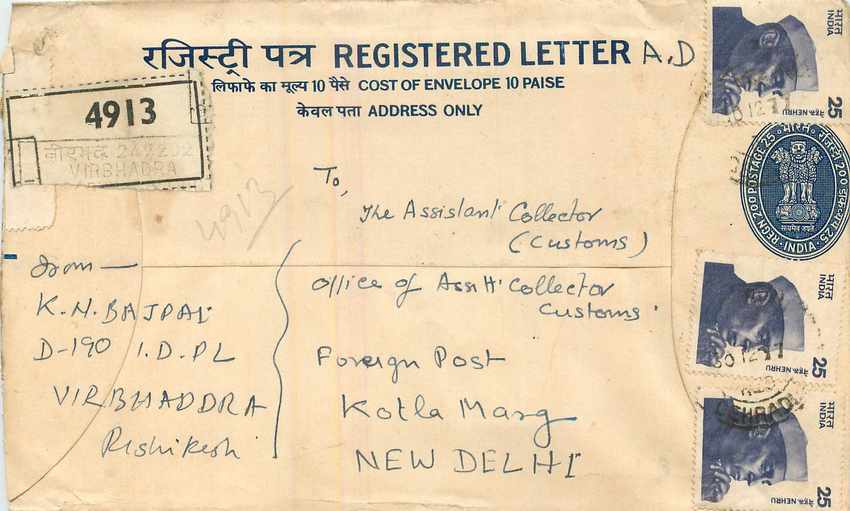 रजिस्ट्री पत्र REGISTERED LETTER A.D
लिफाफे का मूल्य 10 पैसे COST OF ENVELOPE 10 PAISE
केवल पता ADDRESS ONLY
4913
वीरभद्र 249202
VIRBHADRA
4913
To,
The Assistant Collector
(Customs)
Office of Asstt Collector
Customs
Foreign Post
Kotla Marg
NEW DELHI
From —
K.N. BAJPAI
D-190 I.D.PL
VIRBHADDRA
Rishikesh
भारत INDIA
25 नेहरू NEHRU
10 12 77
REGN 200 POSTAGE 25 भारत रजिस्ट्री 200 डाक व्यय 25 INDIA
सत्यमेव जयते
भारत INDIA
25 नेहरू NEHRU
30 12 77
DEHRADU
भारत INDIA
25 नेहरू NEHRU